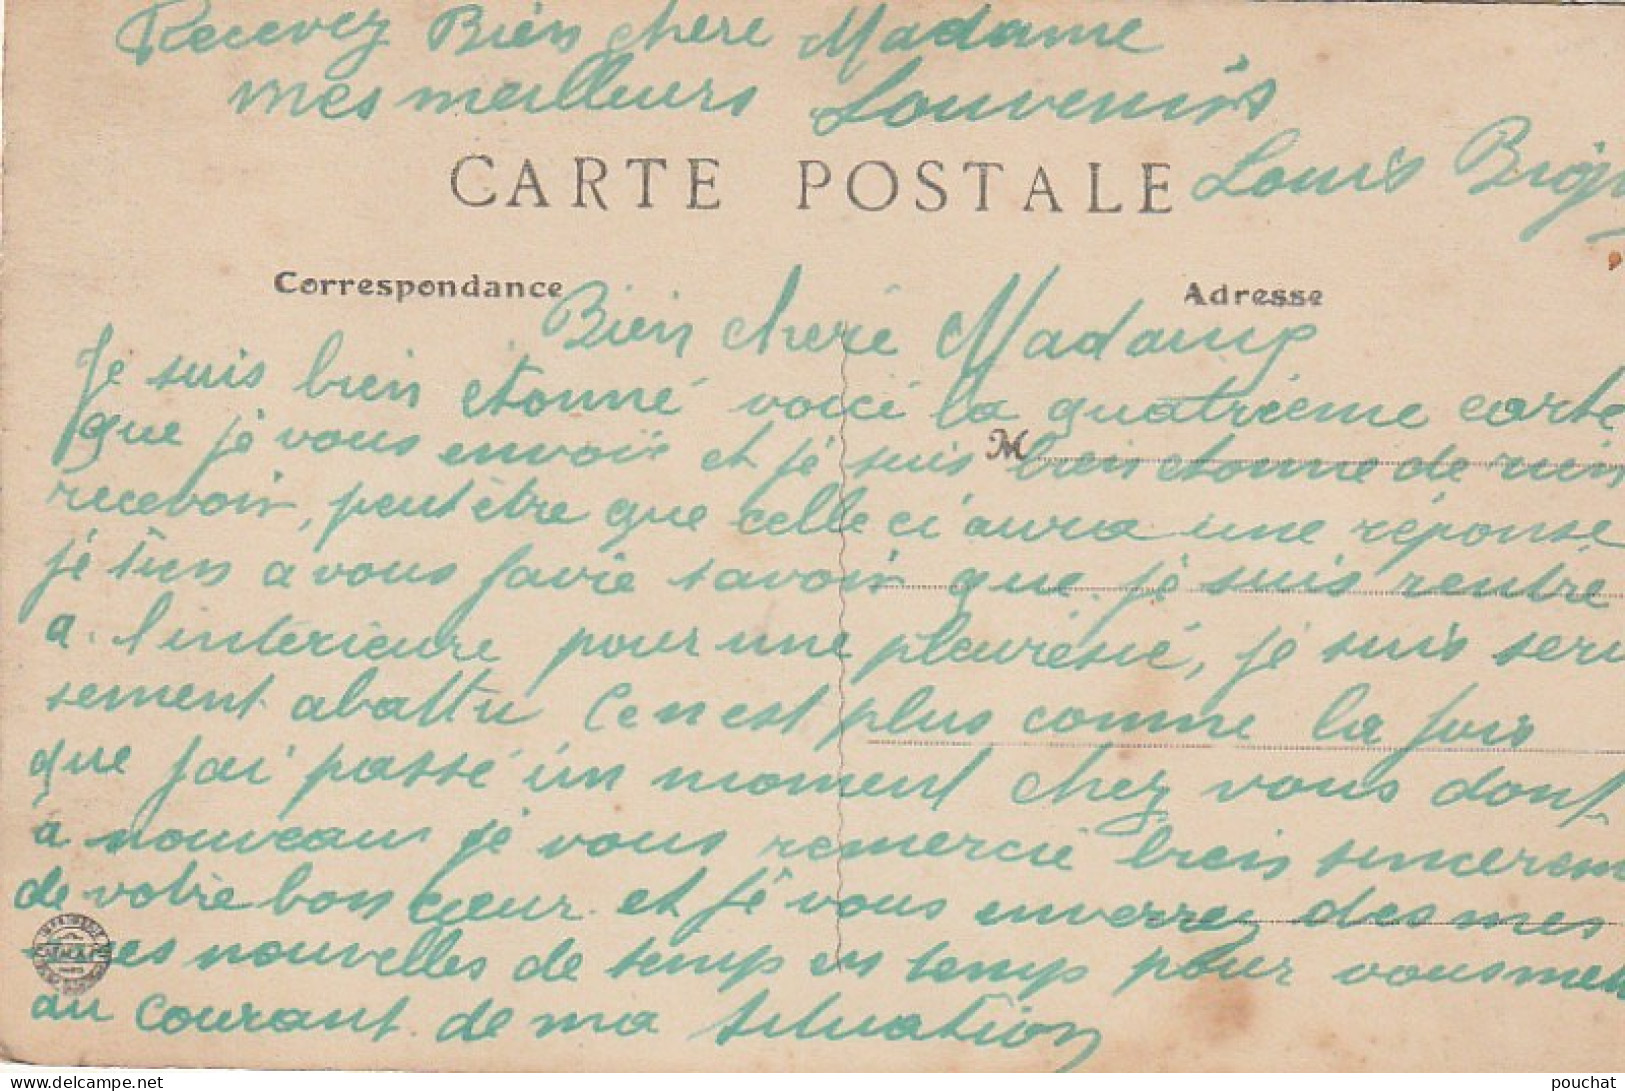 Recevez Bien chere Madame
mes meilleurs Souvenirs
CARTE POSTALE
Louis
Correspondance
Adresse
Bien cheré Madame
Je suis bien etonné voici la quatrieme carte
que je vous envoie et je suis bien etonne de rien
M
recevoir, peut être que celle ci aura une réponse
je tien a vous favie savoir que je suis rentre
a l'interieure pour une pleurésié, je suis seru
sement abattu Ce n est plus comme la fois
que j'ai passé un moment chez vous dont
a nouveau je vous remercie bien sincerem
de votre bon cœur et je vous enverrez des mes
mes nouvelles de temp en temp pour vous met
au courant de ma situation
pouchat